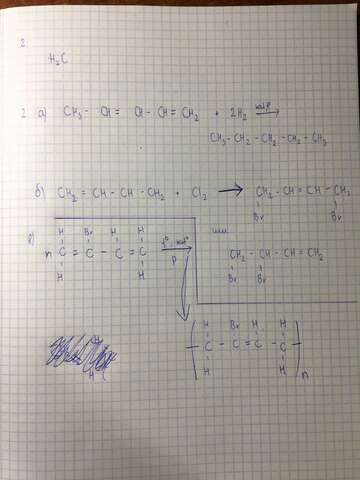 2.
H₂C
2. а) CH₃ - CH = CH - CH = CH₂ + 2H₂ →
CH₃-CH₂-CH₂-CH₂-CH₃
б) CH₂ = CH - CH - CH₂ + Cl₂ → CH₂ - CH = CH - CH₂
Br Br
или
CH₂ - CH - CH = CH₂
Br Br
в) H Br H H
n C = C - C = C t°, кат P
H H
H Br H H
( - C - C = C - C - ) n
H H